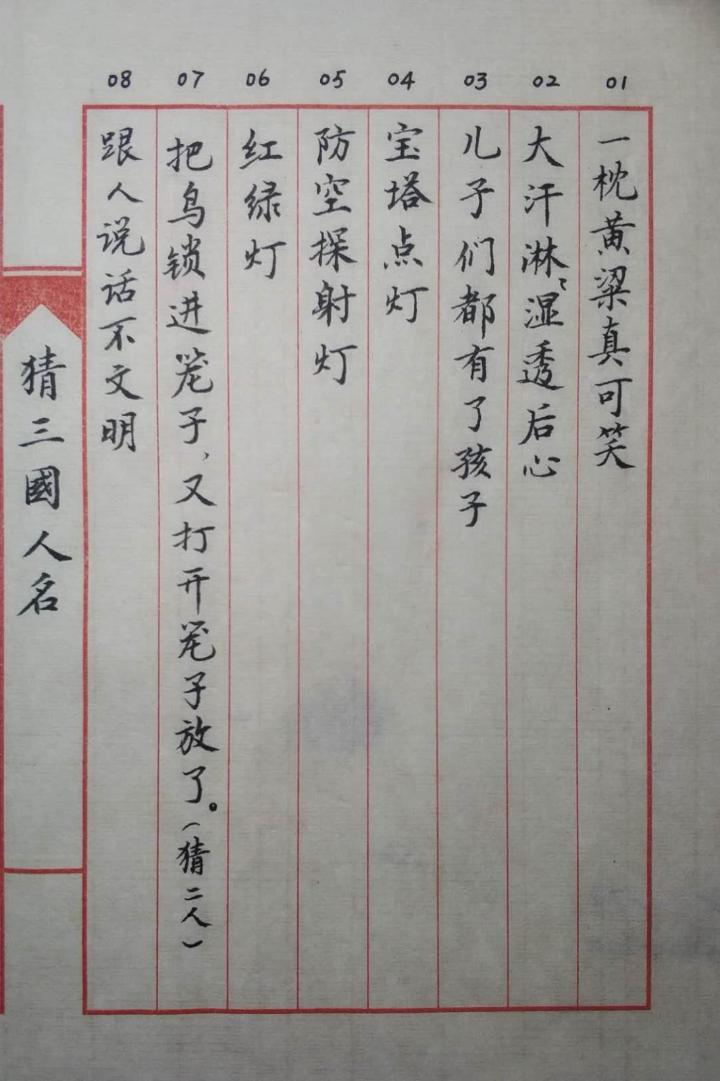 01
一枕黄粱真可笑
02
大汗淋淋湿透后心
03
儿子们都有了孩子
04
宝塔点灯
05
防空探射灯
06
红绿灯
07
把鸟锁进笼子、又打开笼子放了。(猜二人)
08
跟人说话不文明
猜三國人名